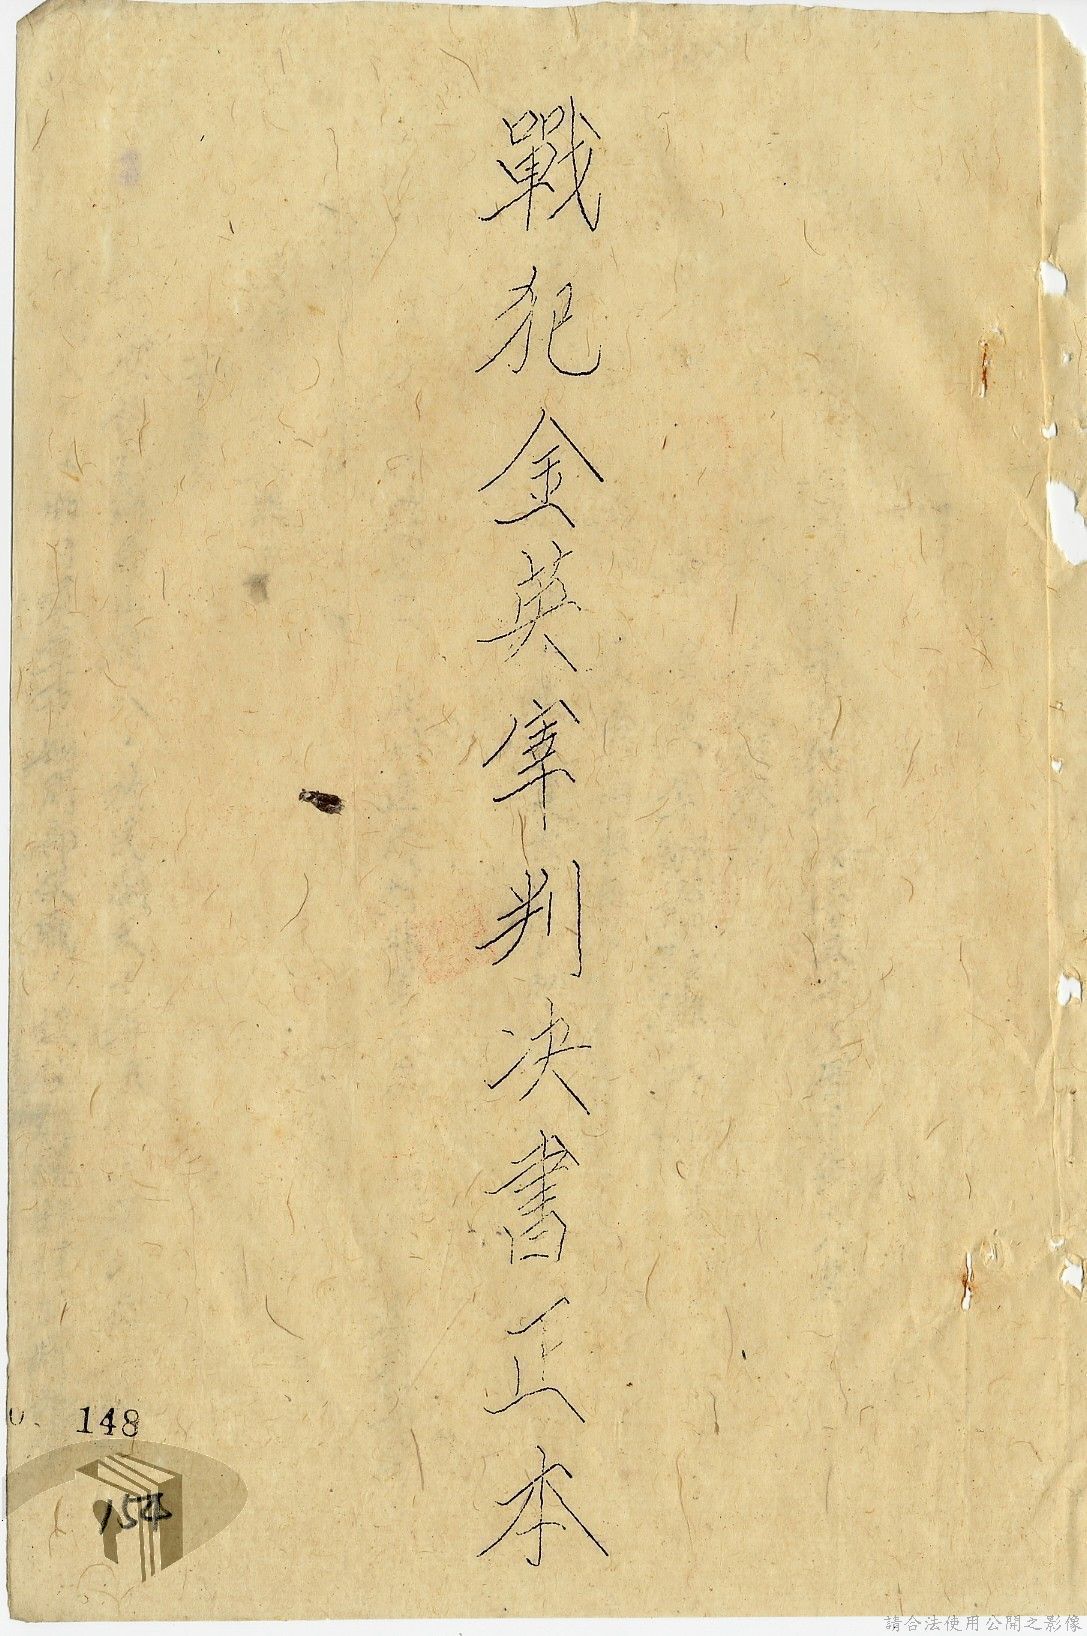 戰犯金英宰判决書正本
148
154
請合法使用公開之影像